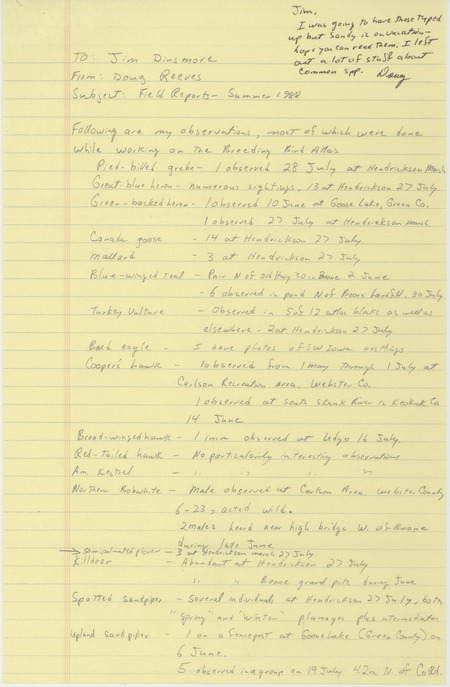 Jim,
I was going to have these typed
up but Sandy is on vacation -
hope you can read them. I left
out a lot of stuff about
common spp. Doug
TO: Jim Dinsmore
From: Doug Reeves
Subject: Field Reports - Summer 1988
Following are my observations, most of which were done
while working on the Breeding Bird Atlas
Pied-billed grebe - 1 observed 28 July at Hendrickson Marsh
Great-blue heron - numerous sightings, 13 at Hendrickson 27 July.
Green-backed heron - 1 observed 10 June at Goose Lake, Green Co.
1 observed 27 July at Hendrickson marsh
Canada goose - 14 at Hendrickson 27 July.
mallard - 3 at Hendrickson 27 July
Blue-winged teal - Pair N of Old Hwy 30 in Boone 2 June
- 6 observed in pond N of Boone landfill. 30 July.
Turkey Vulture - Observed in 5 of 12 atlas blocks as well as
elsewhere - 2 at Hendrickson 27 July.
Bald eagle - I have photos of SW Iowa nestlings
Cooper's hawk - 1 observed from 1 may through 1 July at
Carlson Recreation Area, Webster Co.
1 observed at South Skunk River in Keokuk Co
14 June
Broad-winged hawk - 1 imm observed at Ledges 16 July.
Red-tailed hawk - No particularly interesting observations
Am. Kestrel - " " " "
Northern Bobwhite - Male observed at Carlson Area, Webster County
6-23, acted wild.
2 males heard near high bridge W. of Boone
during late June
→ semi-palmated plover - 3 at Hendrickson marsh 27 July.
Killdeer - Abundant at Hendrickson 27 July
" " Boone gravel pits during June
Spotted sandpiper - Several individuals at Hendrickson 27 July, both
"spring" and "winter" plumages plus intermediates
Upland sandpiper - 1 on a fencepost at Goose Lake (Green County) on
6 June.
5 observed in a group on 19 July 4.2 m N. of Co Rd.